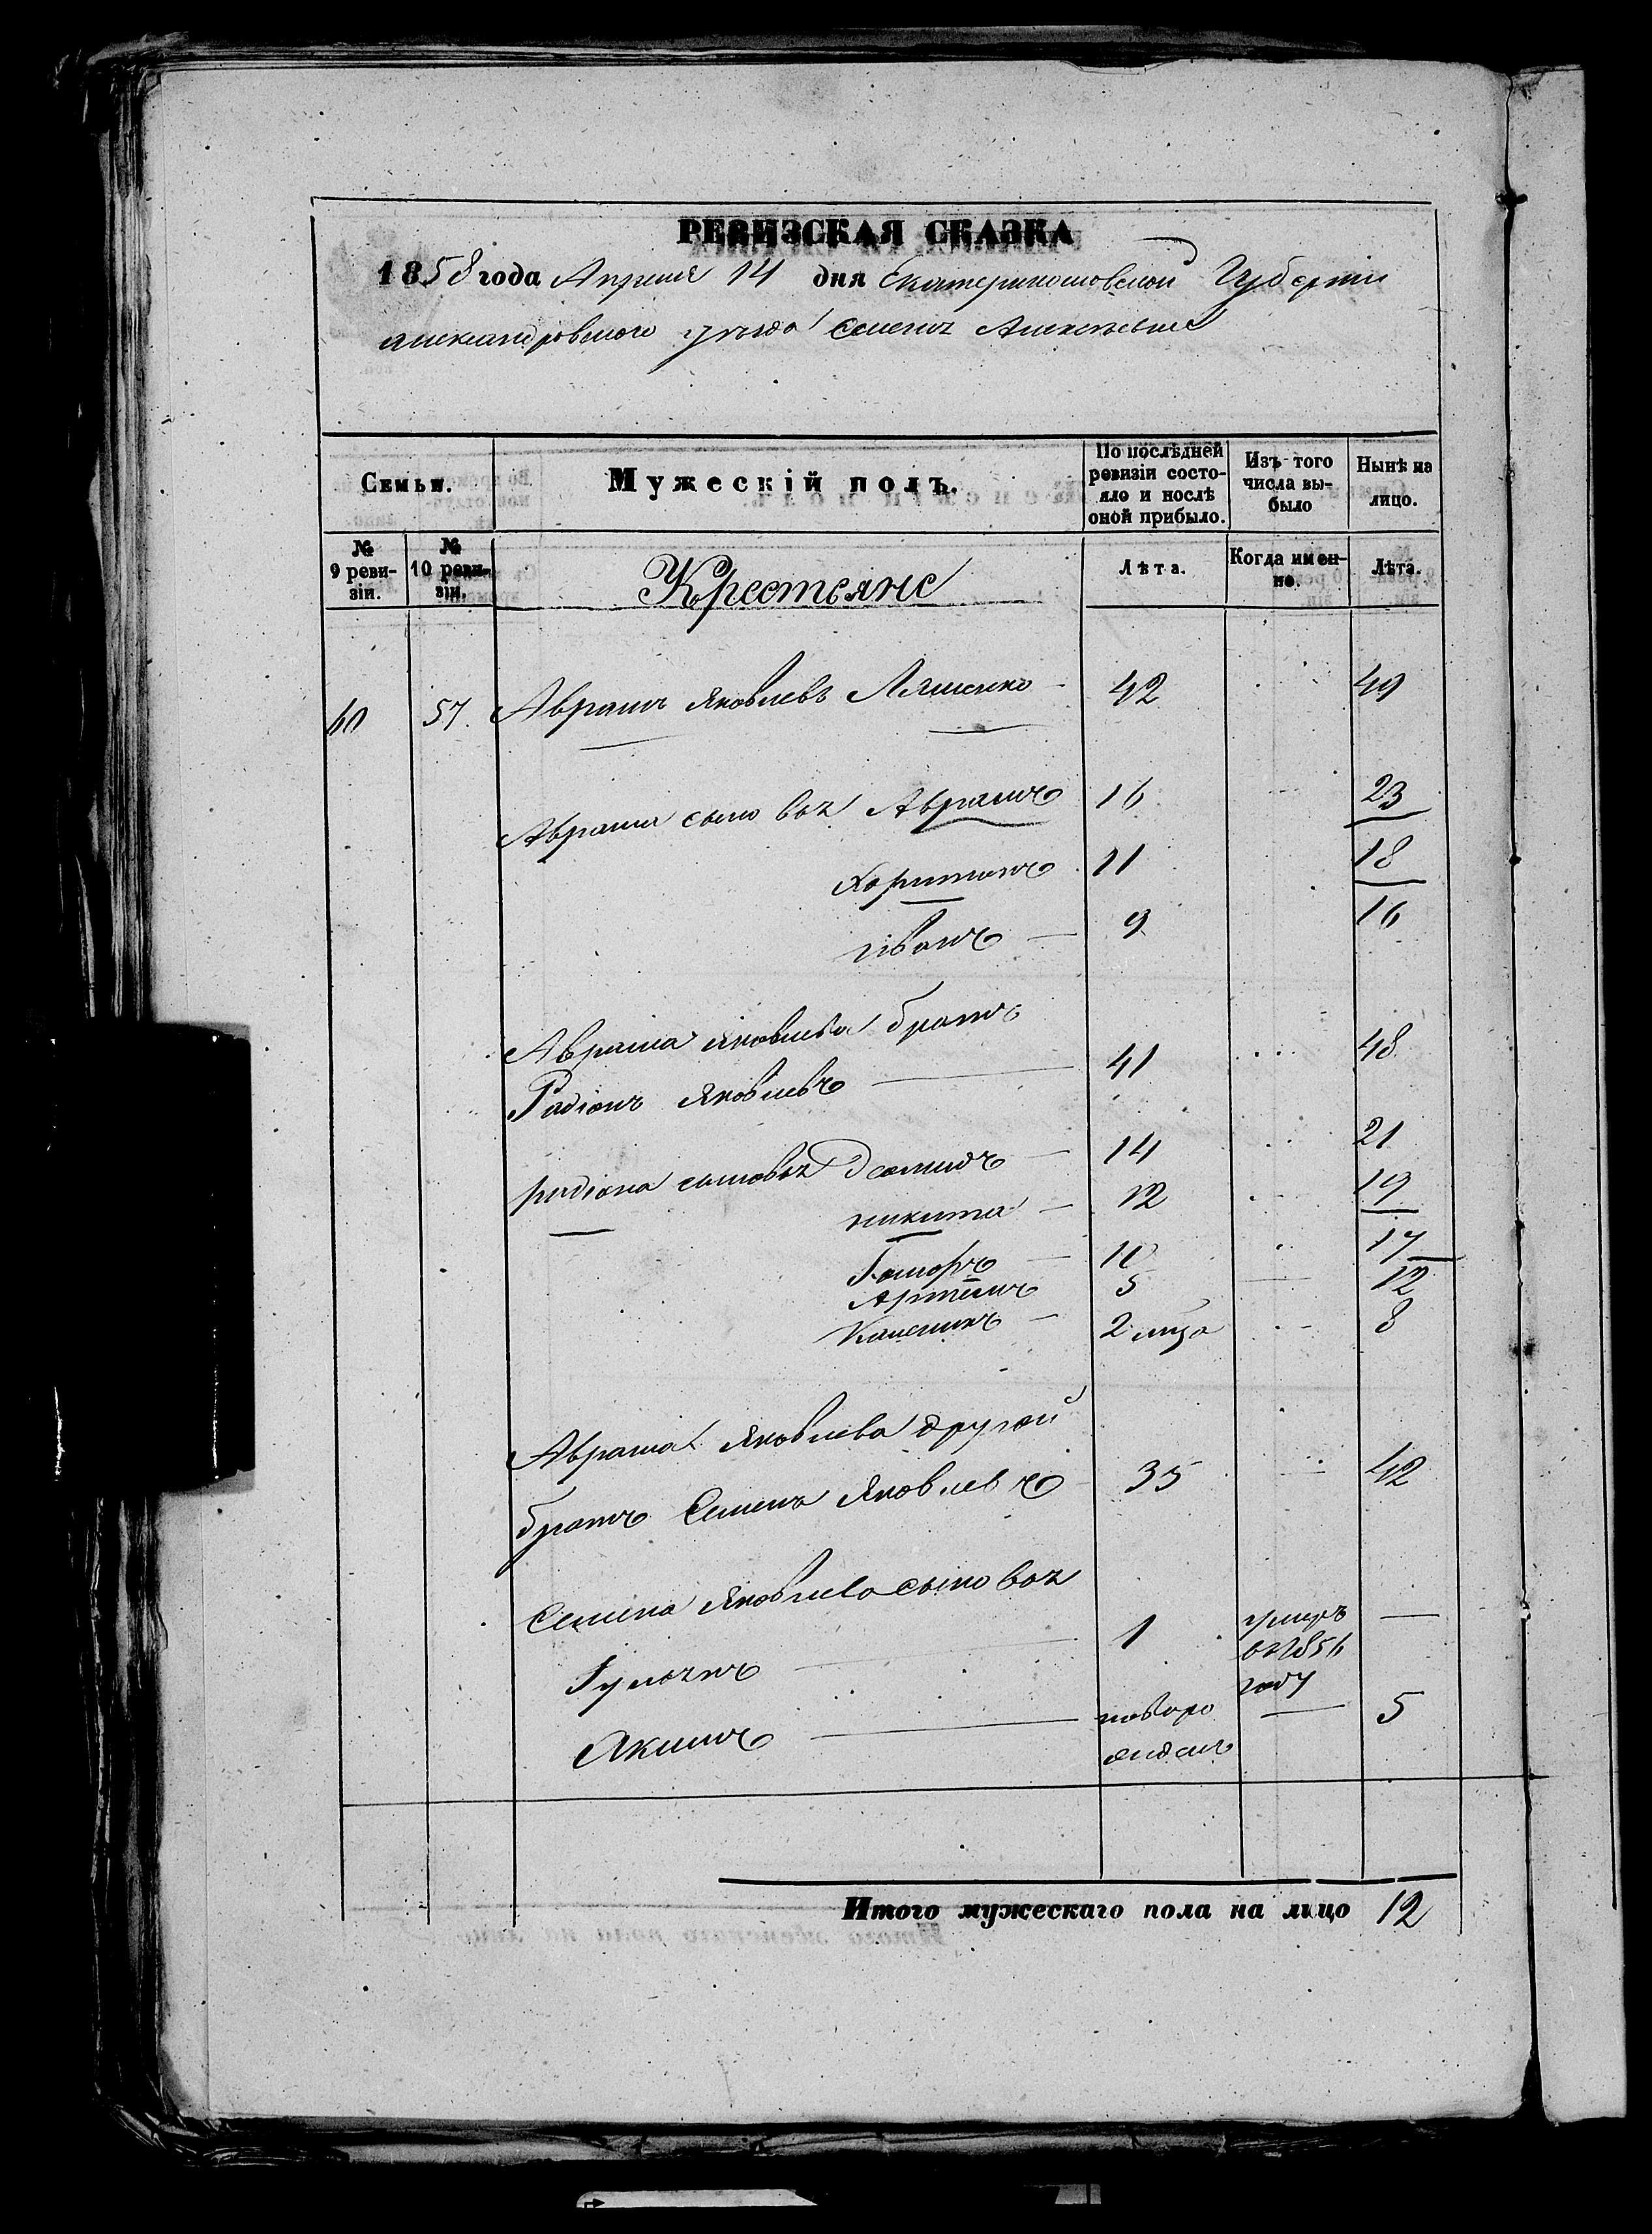 РЕВИЗСКАЯ СКАЗКА
1858 года Апреля 14 дня Екатеринославской Губерніи
Александровского уезда Селенія
Семьи.
Мужескій полъ.
По послѣдней ревизіи состояло и послѣ оной прибыло.
Изъ того числа выбыло
Нынѣ на лицо.
№ 9 ревизіи.
№ 10 ревизіи.
Крестьяне
Лѣта.
Когда именно.
Лѣта.
60 57. Аврамъ Яковлевъ Ляшенко 42 49
Аврама сыновья Аврамъ 16 23
Харитонъ 11 18
Иванъ 9 16
Аврама Яковлева братъ
Радіонъ Яковлевъ 41 48
радіона сыновья 14 21
никита 12 19
10 17
Артемъ 5 12
2 8
Аврама Яковлева другой
братъ Семенъ Яковлевъ 35 42
Семена Яковлева сыновья
1 умеръ
въ 1856
году
Якимъ новоро 5
жденъ
Итого мужескаго пола на лицо 12